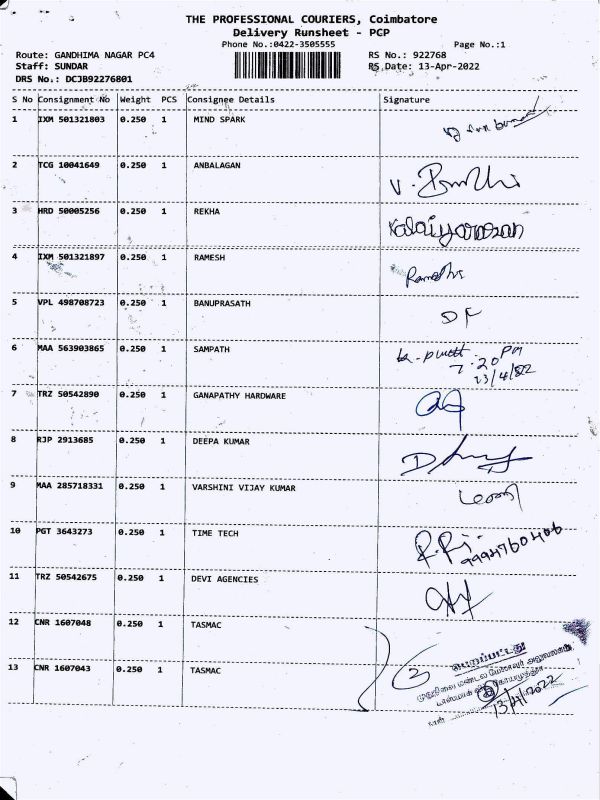 THE PROFESSIONAL COURIERS, Coimbatore
Delivery Runsheet - PCP
Phone No.:0422-3505555 Page No.:1
Route: GANDHIMA NAGAR PC4 RS No.: 922768
Staff: SUNDAR RS Date: 13-Apr-2022
DRS No.: DCJB92276801
S No Consignment No Weight PCS Consignee Details Signature
1 IXM 501321803 0.250 1 MIND SPARK
2 TCG 10041649 0.250 1 ANBALAGAN V.
3 HRD 50005256 0.250 1 REKHA Kalaiyarasan
4 IXM 501321897 0.250 1 RAMESH
5 VPL 498708723 0.250 1 BANUPRASATH
6 MAA 563903865 0.250 1 SAMPATH
7.20 PM
13/4/22
7 TRZ 50542890 0.250 1 GANAPATHY HARDWARE
8 RJP 2913685 0.250 1 DEEPA KUMAR
9 MAA 285718331 0.250 1 VARSHINI VIJAY KUMAR
10 PGT 3643273 0.250 1 TIME TECH
11 TRZ 50542675 0.250 1 DEVI AGENCIES
12 CNR 1607048 0.250 1 TASMAC
பெறப்பட்டது
13 CNR 1607043 0.250 1 TASMAC 2
13/4/2022
நாள்